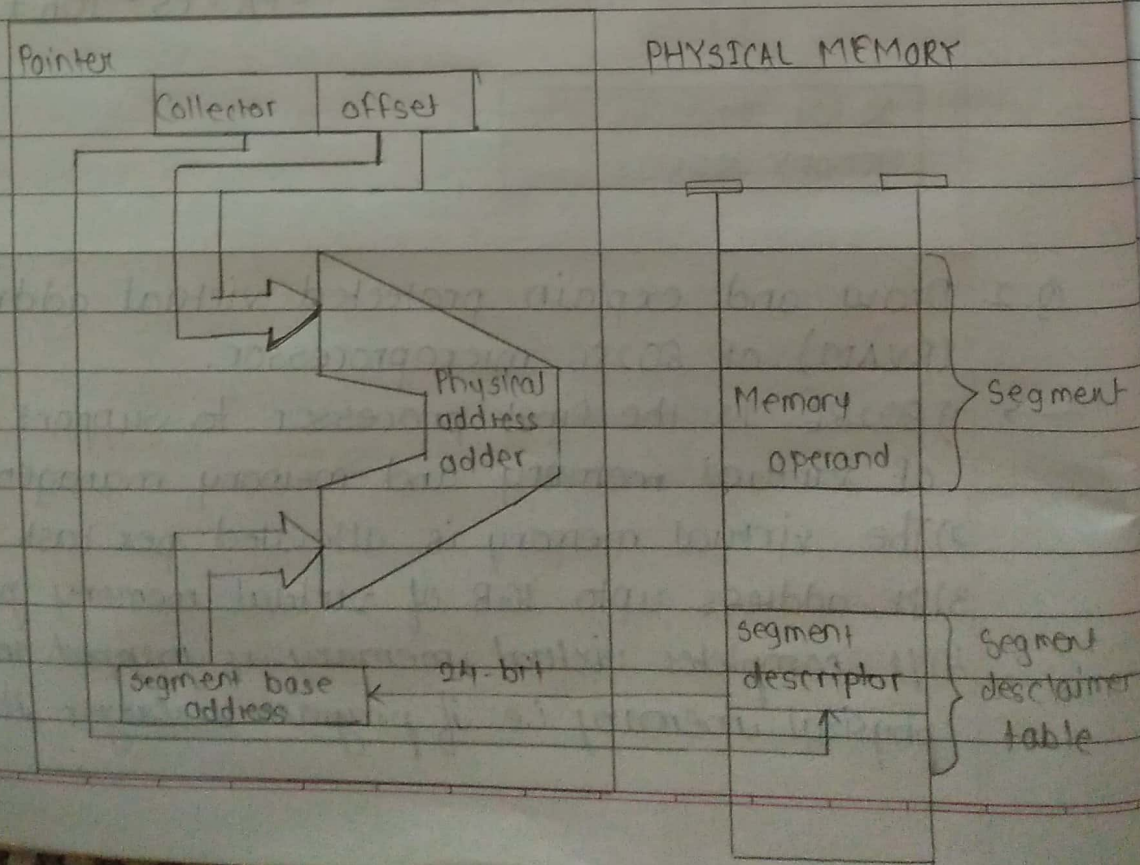 Pointer
PHYSICAL MEMORY
Collector
offset
Physical
address
adder
Memory
operand
Segment
segment
descriptor
Segment
desclaimer
table
24-bit
segment base
address